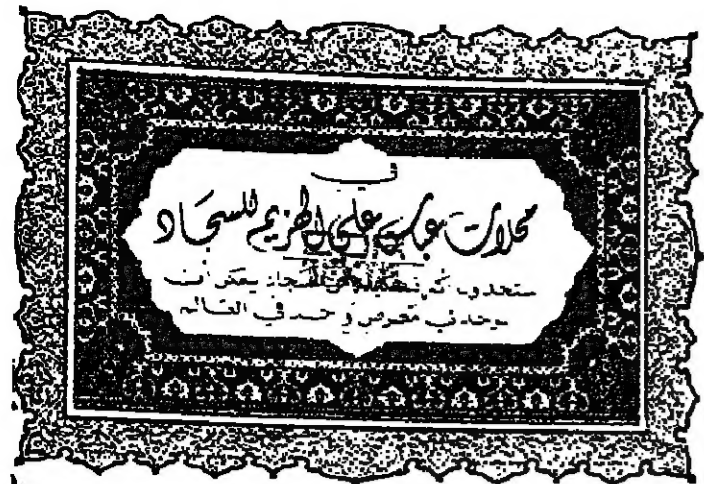 في
محلات عباس علي الهزيم للسجاد
ستجدون أكبر تشكيلة من السجاد يمكن ان
في معرض واحد في العالم